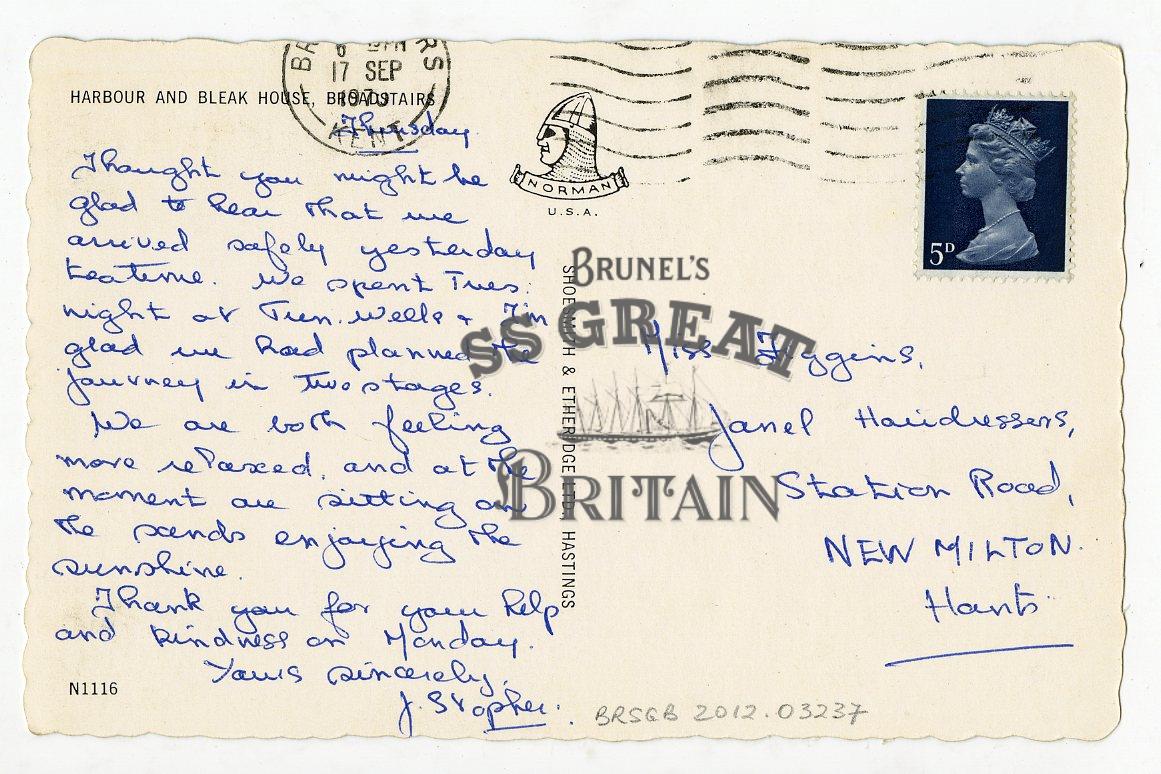 HARBOUR AND BLEAK HOUSE, BROADSTAIRS
17 SEP
KENT
Thursday.
Thought you might be
glad to hear that we
arrived safely yesterday
teatime. We spent Tues:
night at Tun. Wells & I'm
glad we had planned the
journey in two stages.
We are both feeling
more relaxed, and at the
moment are sitting on
the sands enjoying the
sunshine.
Thank you for your help
and kindness on Monday.
Yours sincerely,
J. Stopher.
N1116
NORMAN
U.S.A.
SHOESMITH & ETHERIDGE LTD., HASTINGS
5D
Miss Figgins,
Janel Hairdressers,
Station Road,
NEW MILTON.
Hants.
BRSGB 2012.03237
BRUNEL'S
SS GREAT
BRITAIN